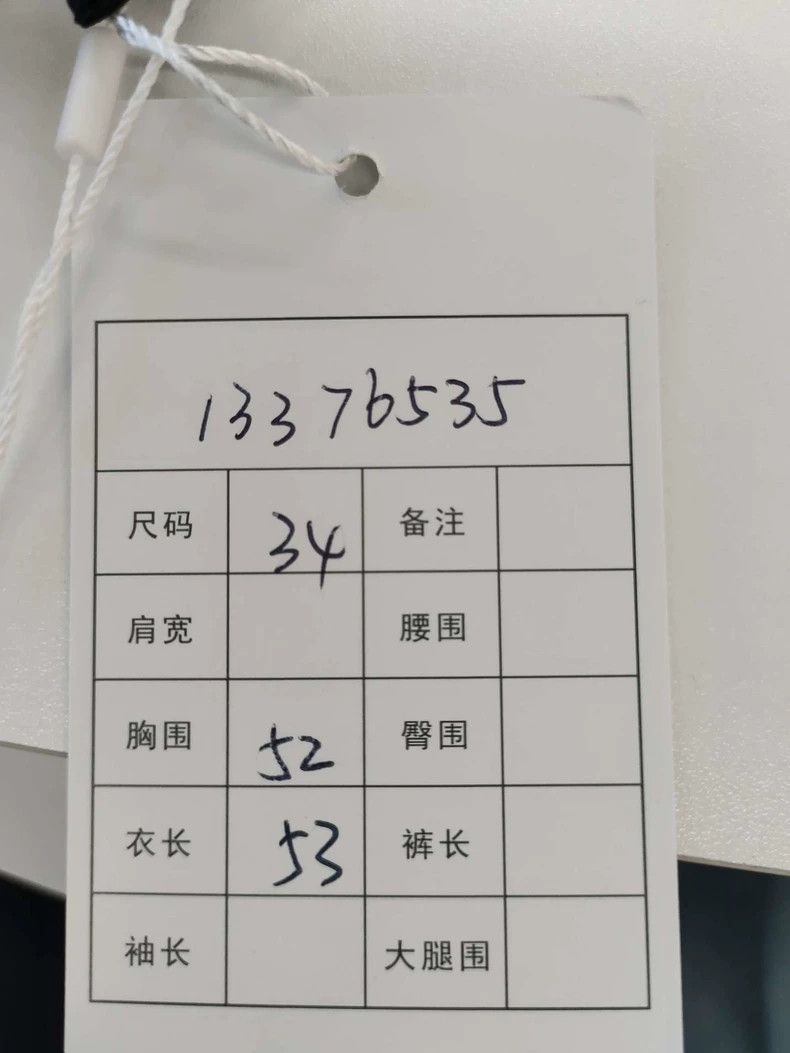 13376535
尺码 34 备注
肩宽 腰围
胸围 52 臀围
衣长 53 裤长
袖长 大腿围